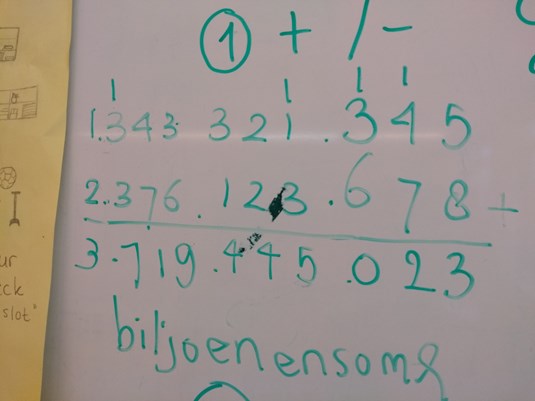 1 + / -
1 1 1 1
1.343.321.345
2.376.123.678 +
3.719.445.023
biljoenensom
ur
ck
slot"